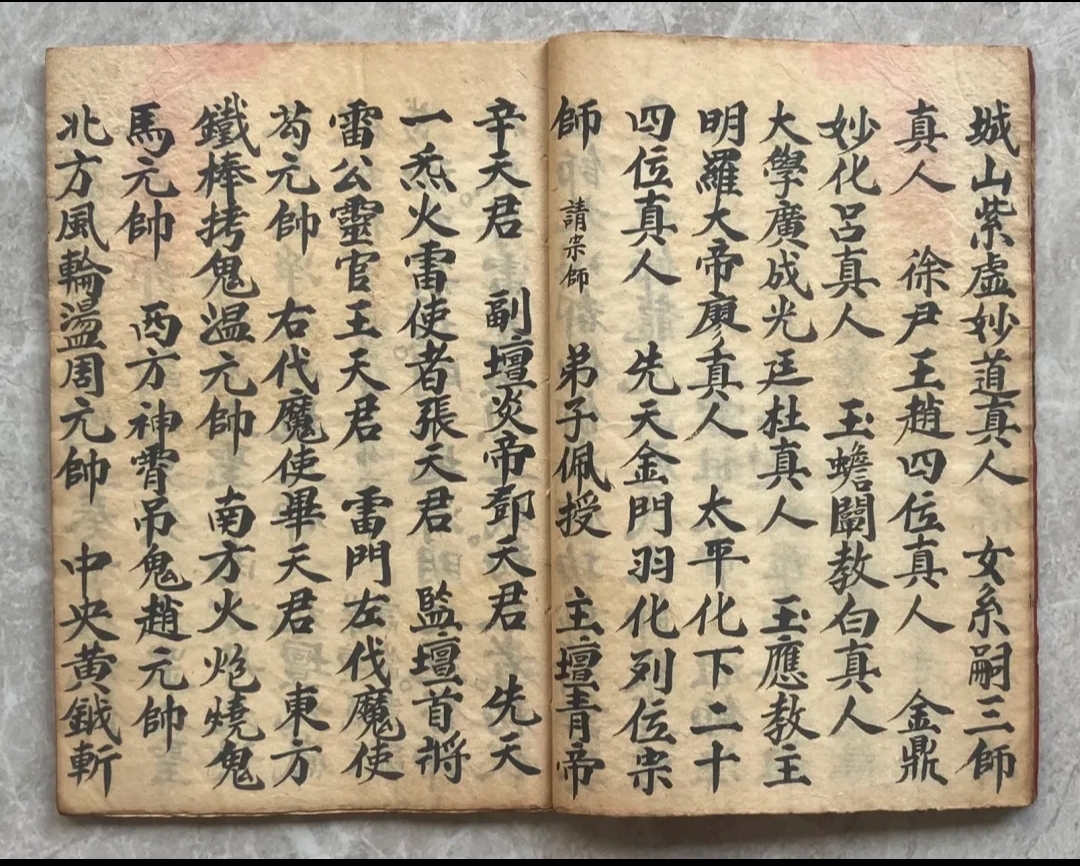 城山紫虛妙道真人 女系嗣三師
真人 徐尹王趙四位真人 金鼎
妙化呂真人 玉蟾闡教白真人
大學廣成光廷杜真人 玉應教主
明羅大帝廖真人 太平化下二十
四位真人 先天金門羽化列位宗
師 請宗師 弟子佩授 主壇青帝
辛天君 副壇炎帝鄧天君 先天
一炁火雷使者張天君 監壇首將
雷公靈官王天君 雷門左伐魔使
苟元帥 右代魔使畢天君 東方
鐵棒拷鬼溫元帥 南方火炮燒鬼
馬元帥 西方神霄吊鬼趙元帥
北方風輪盪周元帥 中央黃鉞斬